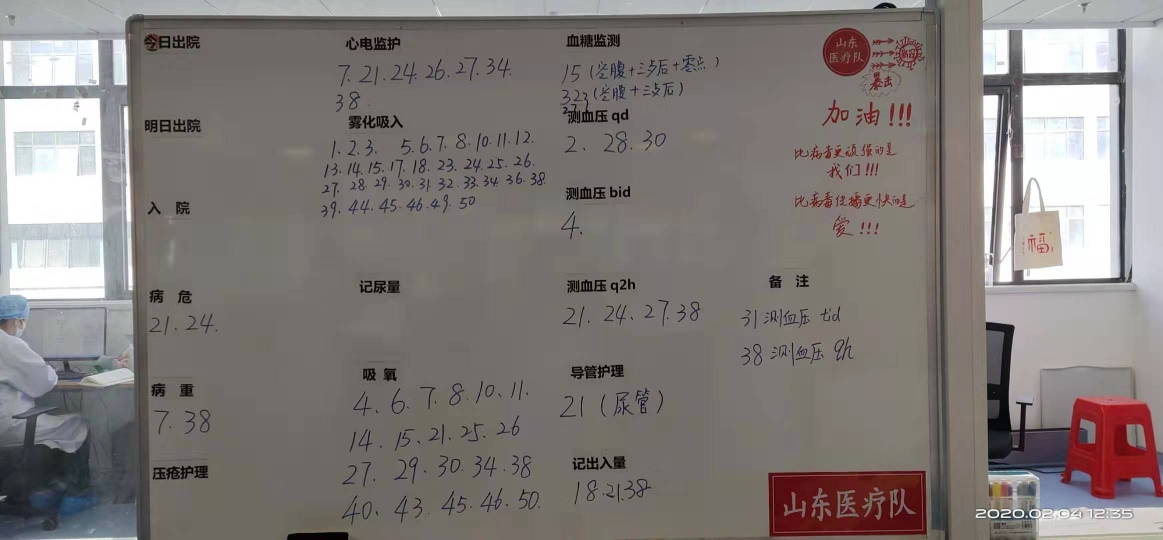 今日出院
明日出院
入 院
病 危
21. 24.
病 重
7. 38
压疮护理
心电监护
7. 21. 24. 26. 27. 34.
38.
雾化吸入
1. 2. 3. 5. 6. 7. 8. 10. 11. 12.
13. 14. 15. 17. 18. 23. 24. 25. 26.
27. 28. 29. 30. 31. 32. 33. 34. 36. 38.
39. 44. 45. 46. 49. 50
记尿量
吸 氧
4. 6. 7. 8. 10. 11.
14. 15. 21. 25. 26
27. 29. 30. 34. 38
40. 43. 45. 46. 50.
血糖监测
15 (空腹+三餐后+零点)
(空腹+三餐后)
测血压 qd
2. 28. 30
测血压 bid
4.
测血压 q2h
21. 24. 27. 38
导管护理
21 (尿管)
记出入量
18. 21. 38
山东
医疗队
暴击
加油!!!
比病毒更顽强的是
我们!!!
比病毒传播更快的是
爱!!!
备 注
31 测血压 tid
38 测血压 qh
山东医疗队
福
2020.02.04 12:35